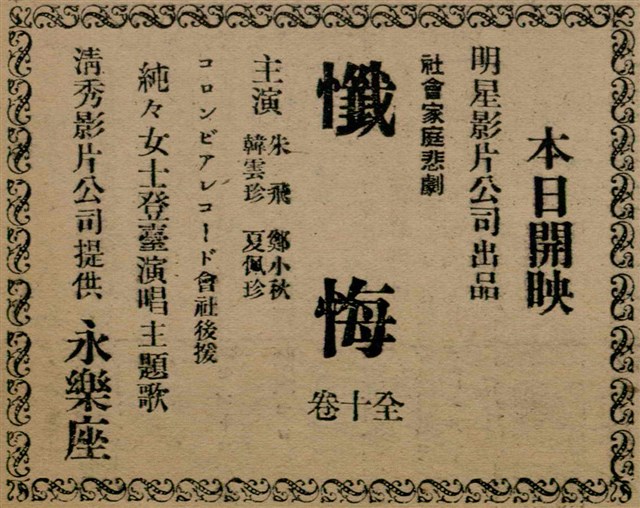 本日開映
明星影片公司出品
社會家庭悲劇
懺悔
全十卷
主演
朱飛 鄭小秋
韓雲珍 夏佩珍
コロンビアレコード會社後援
純々女士登臺演唱主題歌
清秀影片公司提供 永樂座